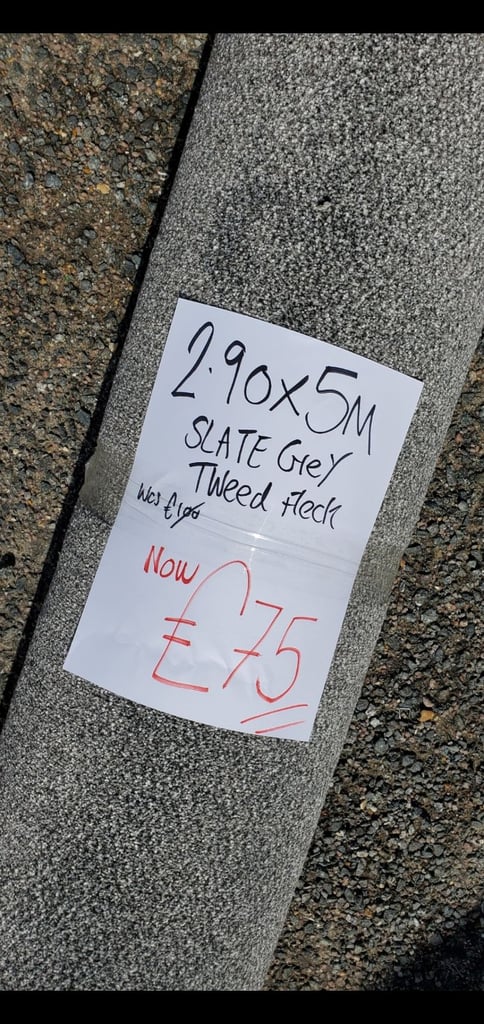 2.90x5M
SLATE GreY
TWeed Fleck
Was £100
Now
£75